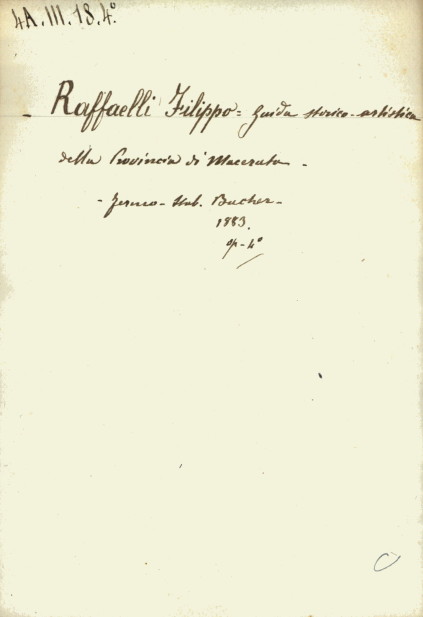 4A.III.18.4°
- Raffaelli Filippo = Guida storico-artistica
della Provincia di Macerata -
- Fermo - Stab. Bacher -
1883.
op - 4°